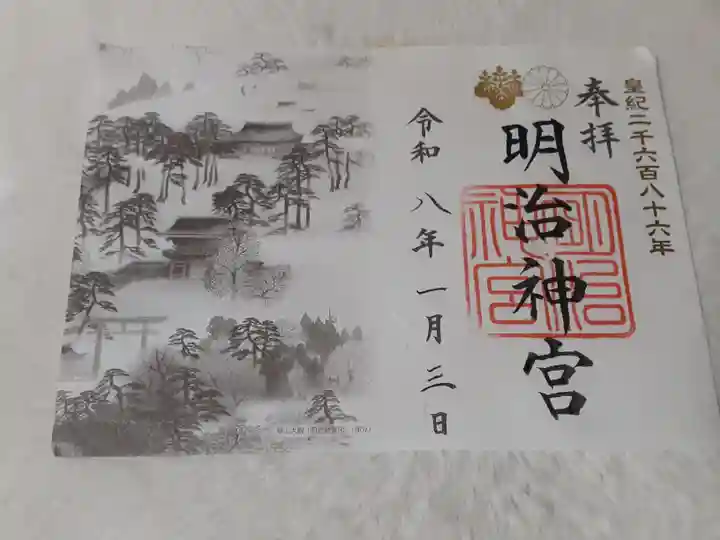 皇紀二千六百八十六年
奉拝
明治神宮
明治神宮
令和八年一月三日